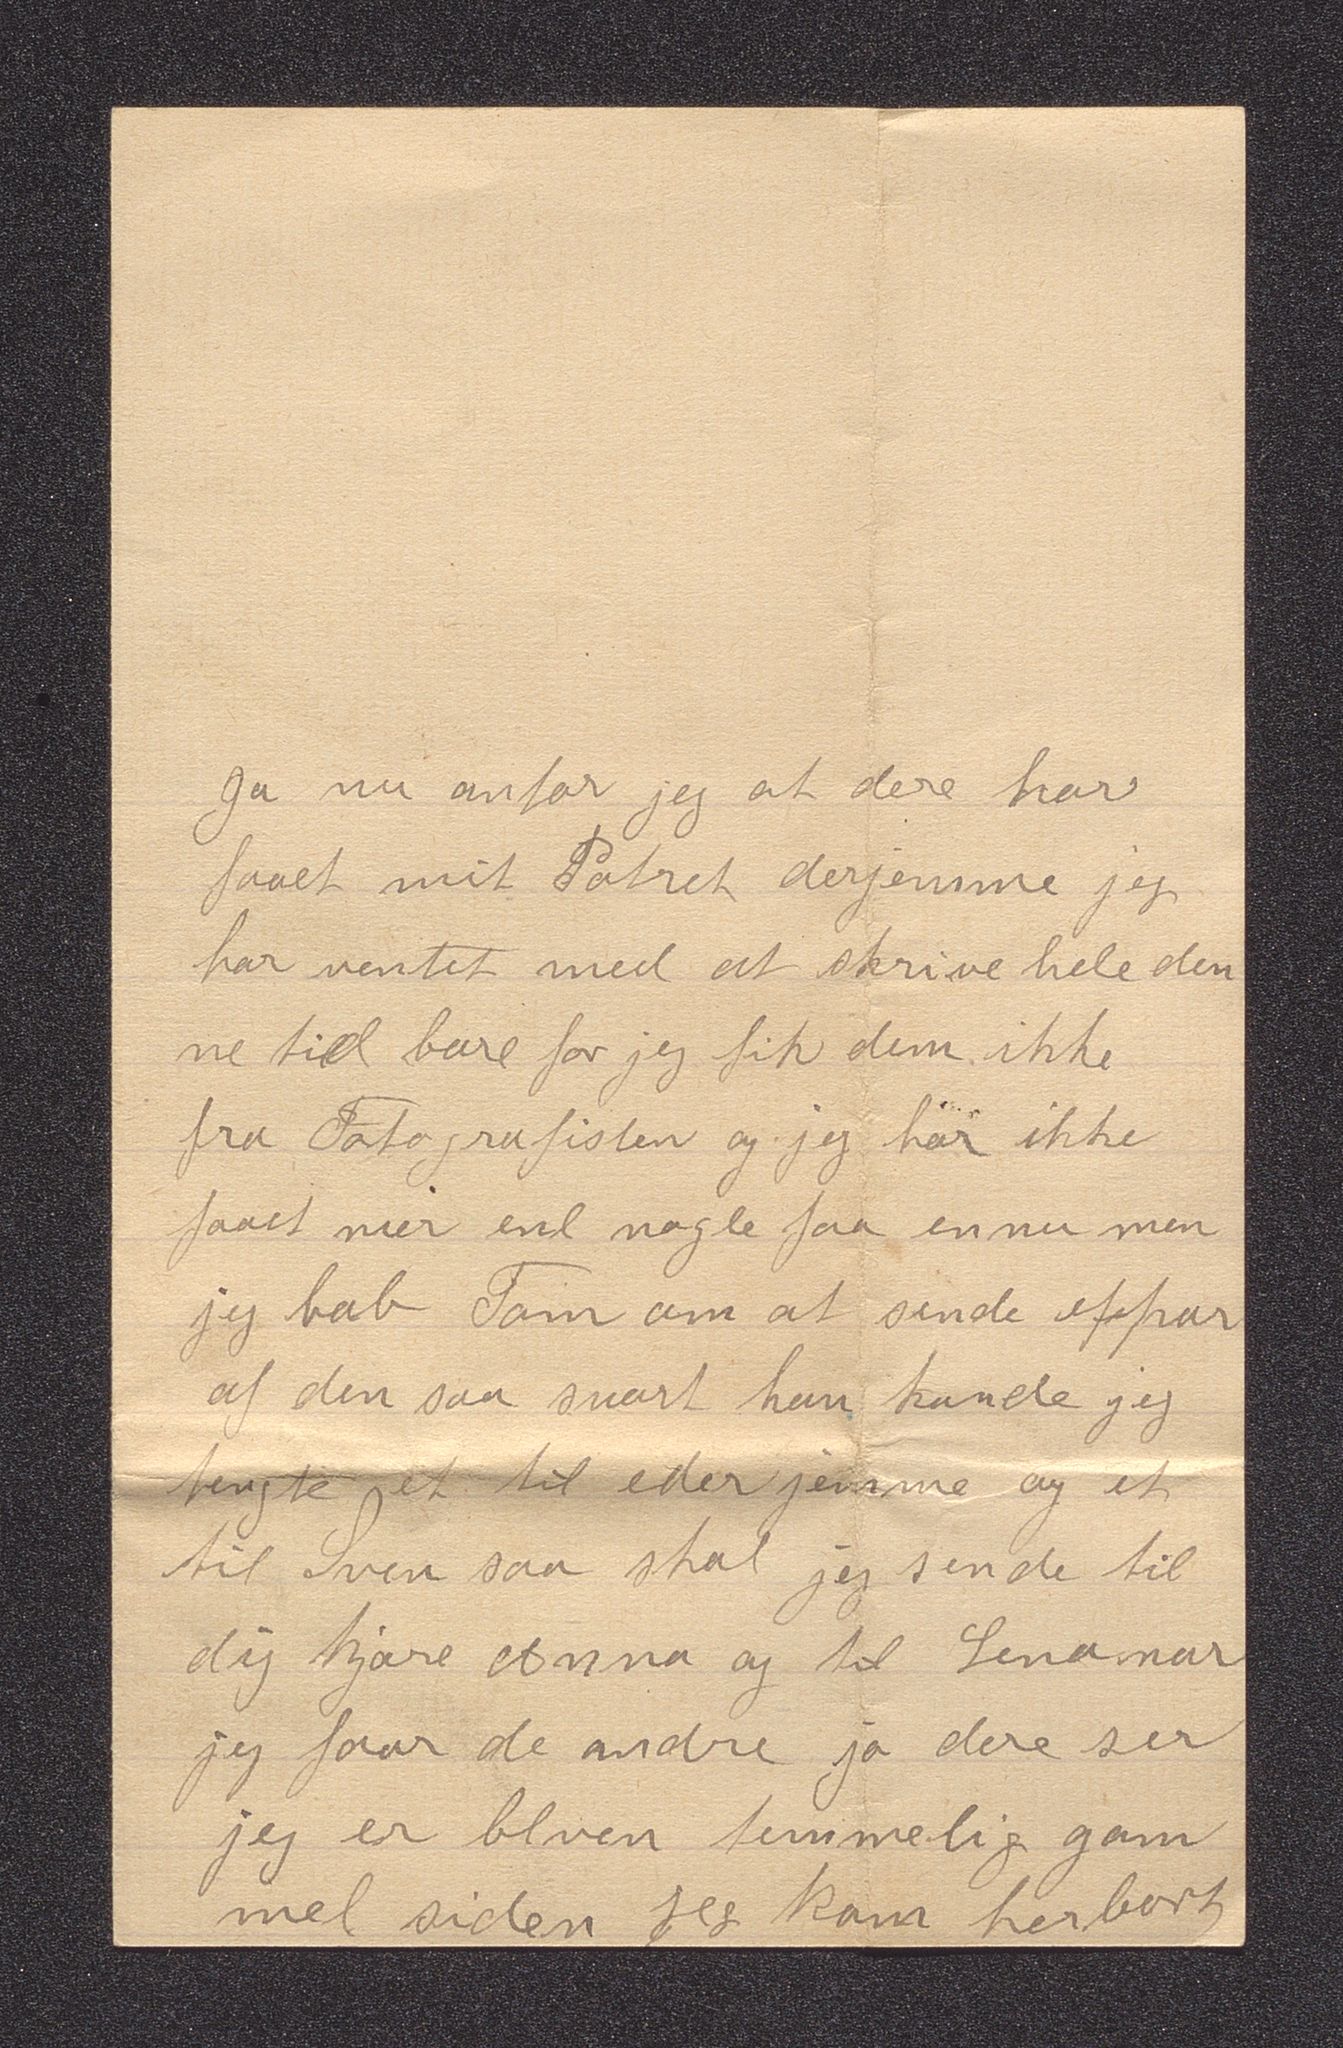 Ja nu anfor jeg at dere har
faaet mit Potret derjemme jeg
har ventet med at skrive hele den
ne tid bare for jeg fik dem ikke
fra Fotografisten og jeg har ikke
faaet mer end nogle faa ennu men
jeg bab Tom om at sende etpar
af den saa snart han kunde jeg
tengte et til eder jemme og et
til Sven saa skal jeg sende til
dig kjære Anna og til Lena nar
jeg faar de andre ja dere ser
jeg er blven temmelig gam
mel siden jeg kom herbort